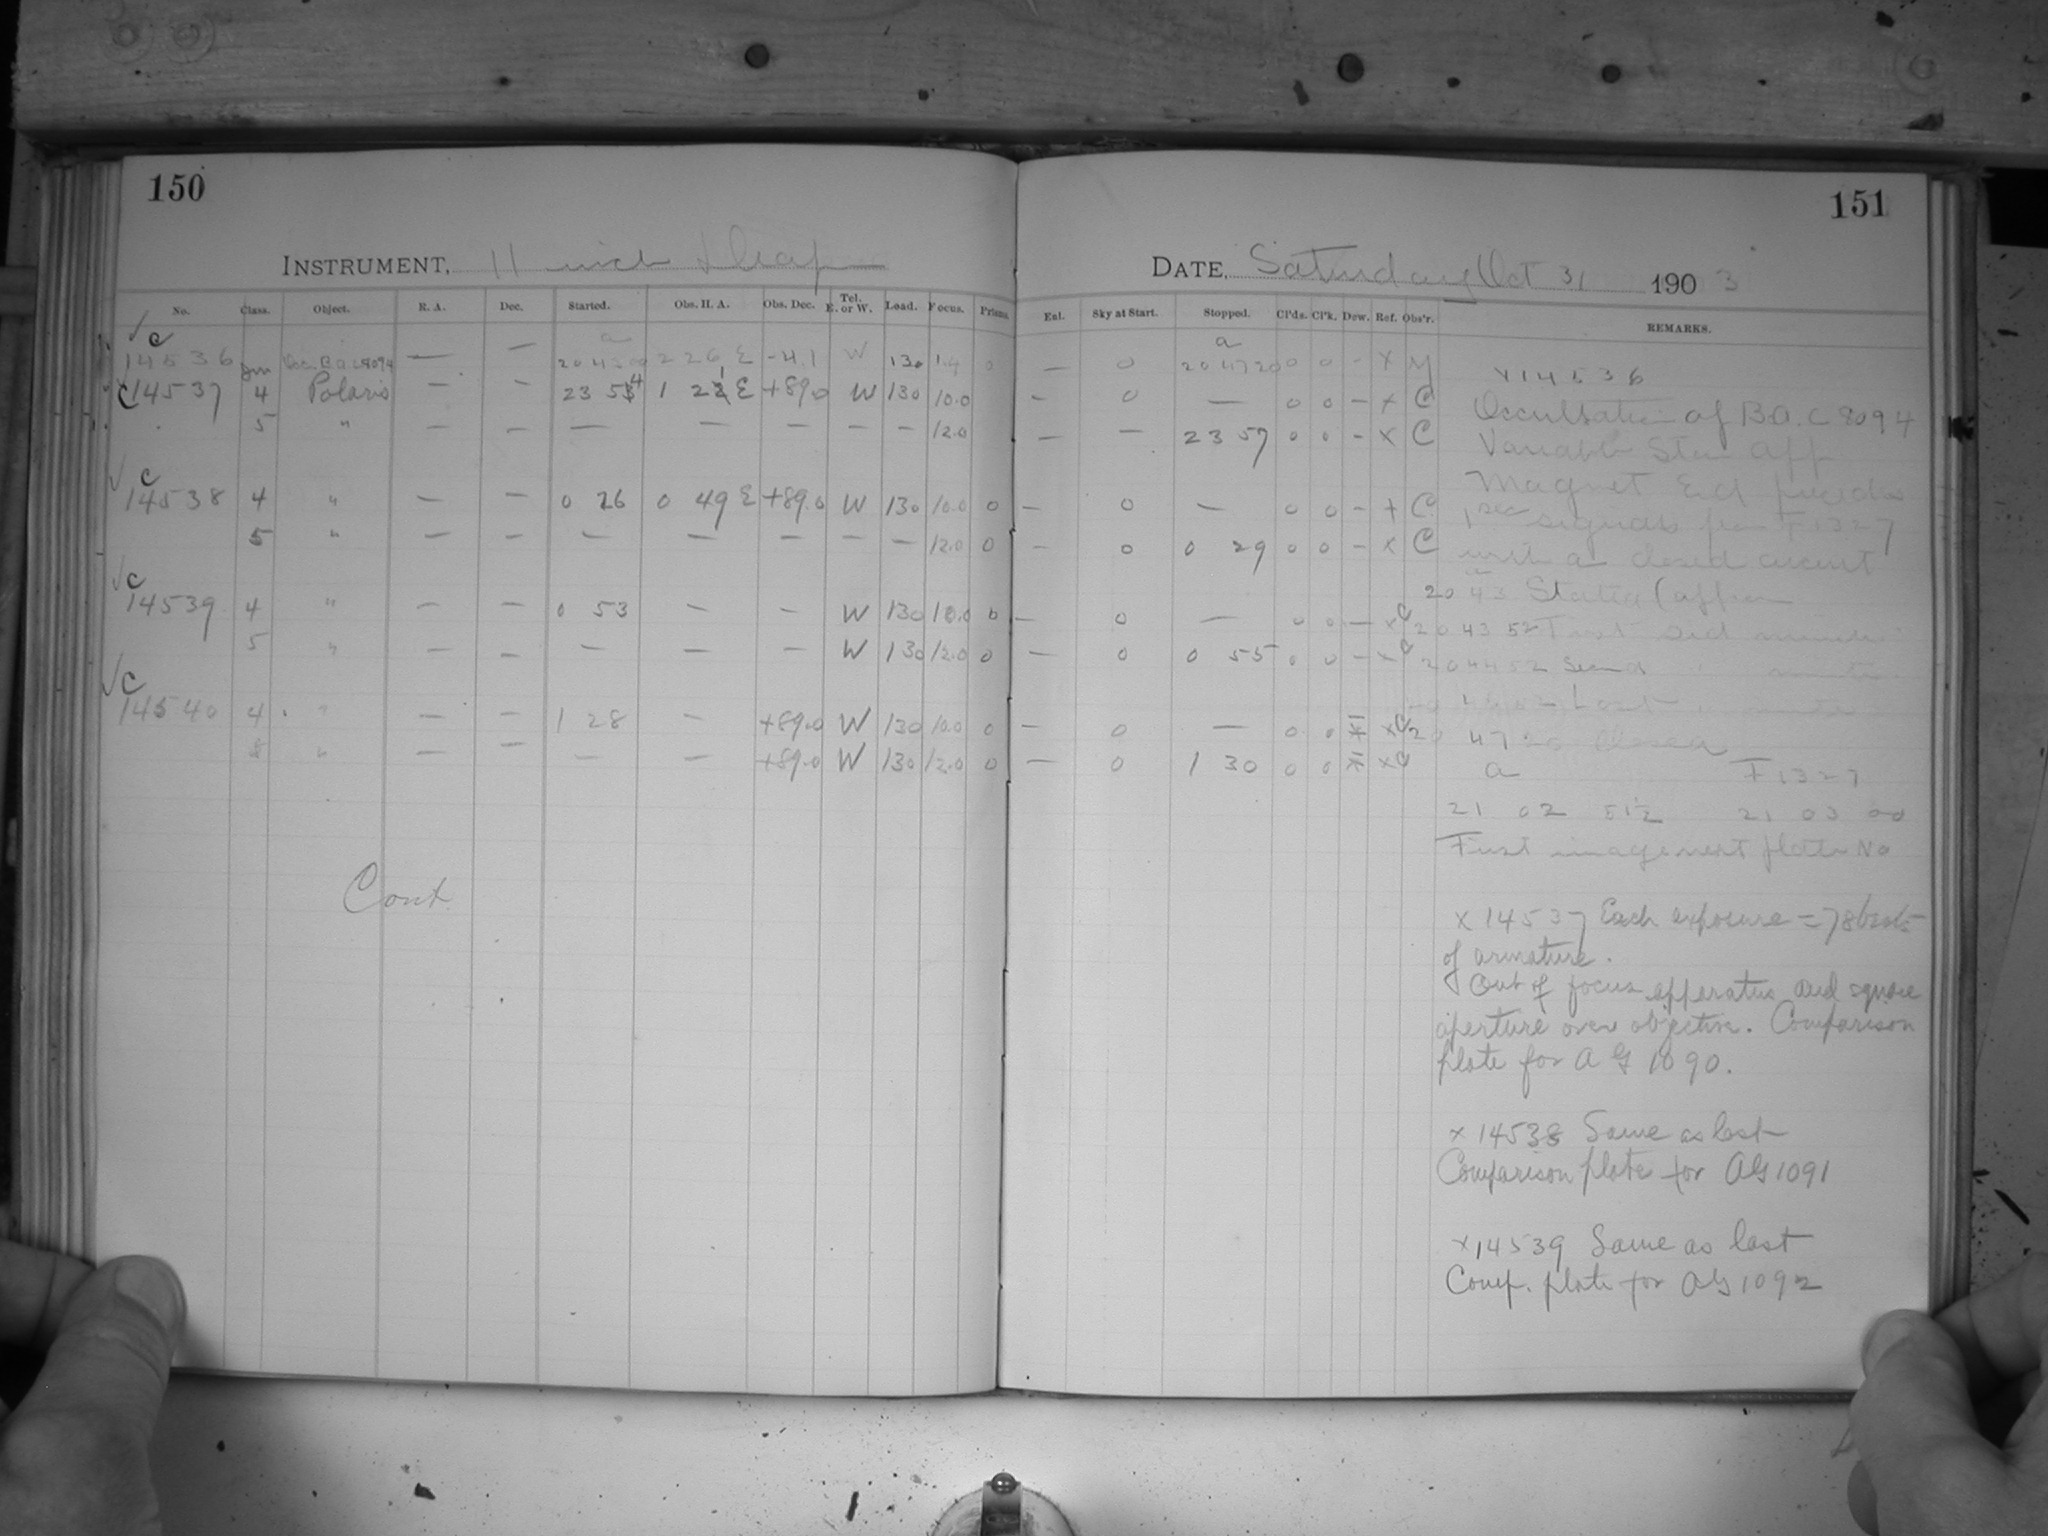 150
INSTRUMENT, 11 inch Draper
No. Class. Object. R. A. Dec. Started. Obs. H. A. Obs. Dec. Tel. E. or W. Load. Focus. Prisms.
√ C a
14536 Occ. B.A.C. 8094 — — 20 43 00 2 26 E -4.1 W 130 1.4 0
C 14537 4 Polaris — — 23 54 1 21 E +89.0 W 130 10.0
5 " — — — — — — — 12.0
√ C
14538 4 " — — 0 26 0 49 E +89.0 W 130 10.0 0
5 " — — — — — — — 12.0 0
√ C
14539 4 " — — 0 53 — — W 130 10.0 0
5 " — — — — — W 130 12.0 0
√ C
14540 4 " — — 1 28 — +89.0 W 130 10.0 0
" — — — — +89.0 W 130 12.0 0
Cont.
151
DATE, Saturday Oct 31 1903
Enl. Sky at Start. Stopped. Cl'ds. Cl'k. Dew. Ref. Obs'r. REMARKS.
a
— 0 20 47 20 0 0 - x M
— 0 — 0 0 — x C
— — 23 57 0 0 - x C
— 0 — 0 0 - x C
— 0 0 29 0 0 — x C
— 0 — 0 0 — x C
— 0 0 55 0 0 — x C
— 0 — 0 0 x C
— 0 1 30 0 0 x C
x 14536
Occultation of B.A.C 8094
Variable Star App
Magnet End
1 sec signals from F 1327
with a closed circuit
20 43 Started
20 43 52 First minute
20 44 52 Second " minute
Last " minute
20 47 20 Closed
a F 1327
21 02 51½ 21 03 00
First image next plate No
x 14537 Each exposure = 78 beats
of armature.
Out of focus apparatus and square
aperture over objective. Comparison
plate for A G 1090.
x 14538 Same as last
Comparison plate for AG 1091
x 14539 Same as last
Comp. plate for AG 1092